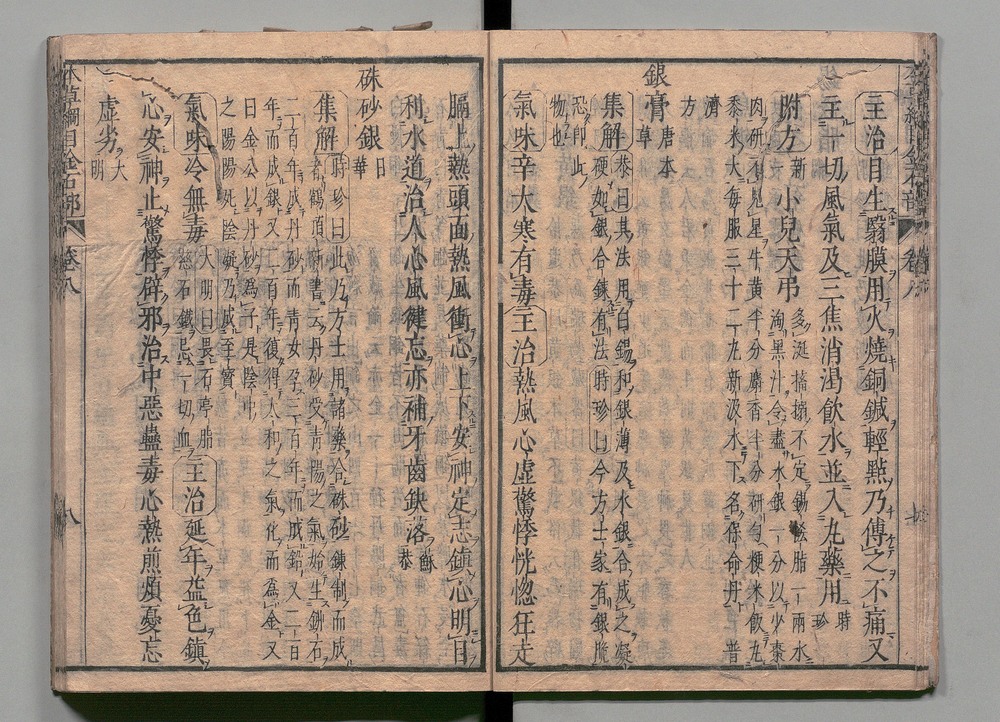 主治目生翳膜用火燒銅鍼輕點乃傅之不痛又
主一切風氣及三焦消渴飲水並入丸藥用時珍
附方新一小兒天弔多涎搐搦不定錫𢘆脂一兩水
淘黑汁令盡水銀一分以少棗
肉研不見星牛黃半分麝香半分研勻粳米飯丸
黍米大每服三十二丸新汲水下名保命丹普
濟
方
銀膏唐本
草
集解恭曰其法用白錫和銀薄及水銀合成之凝
硬如銀合鍊有法時珍曰今方士家有銀脆
恐即此
物也
氣味辛大寒有毒主治熱風心虛驚悸恍惚狂走
膈上熱頭面熱風衝心上下安神定志鎮心明目
利水道治人心風健忘亦補牙齒缺落蘇恭
硃砂銀日
華
集解時珍曰此乃方士用諸藥合硃砂鍊制而成
者鶴頂新書云丹砂受青陽之氣始生鉚石
二百年成丹砂而青女孕三百年而成鉛又二百
年而成銀又二百年復得太和之氣化而爲金又
曰金公以丹砂爲子是陰中
之陽陽死陰凝乃成至寶
氣味冷無毒大明曰畏石亭脂
慈石鐵忌一切血主治延年益色鎮
心安神止驚悸辟邪治中惡蠱毒心熱煎煩憂忘
虛劣大
明
本草綱目金石部
卷八
八